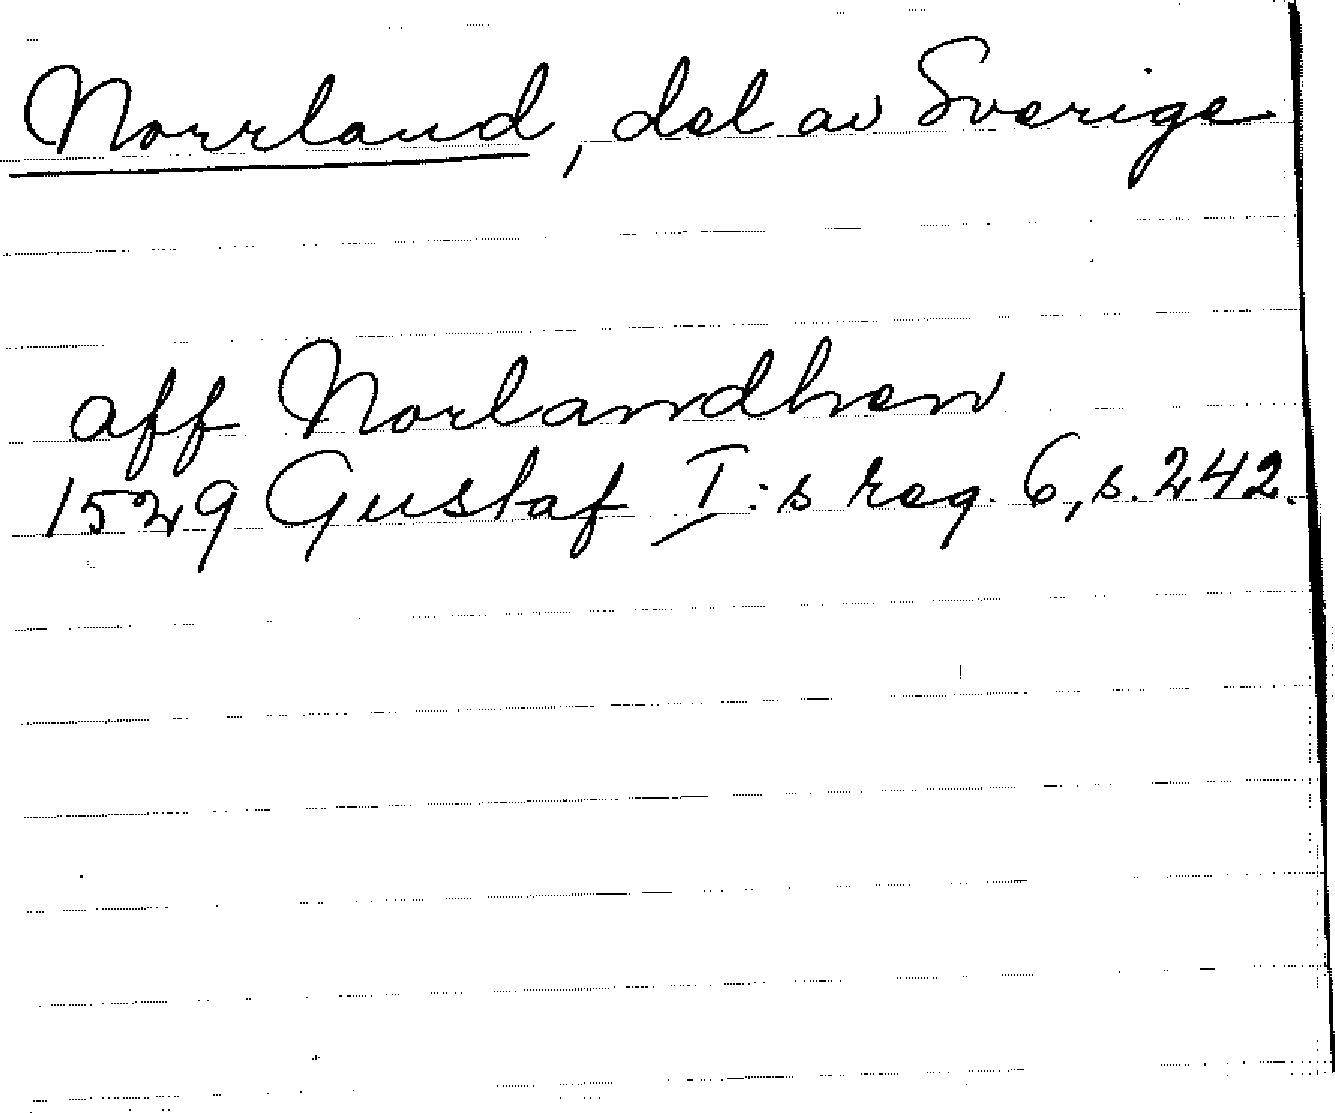 Norrland, del av Sverige
aff Norlandhen
1529 Gustaf I:s reg. 6, s. 242.